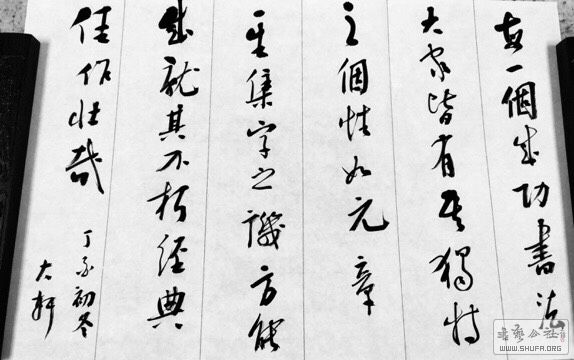 每一個成功書法
大家皆有其獨特
之個性如元章
集字之譏方能
成就其不朽經典
佳作壯哉
丁亥初冬
大軒
書藝公社
WWW.SHUFA.ORG